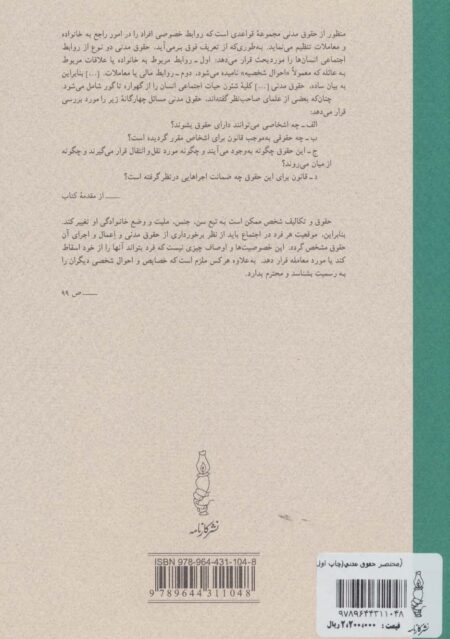 منظور از حقوق مدنی مجموعهٔ قواعدی است که روابط خصوصی افراد را در امور راجع به خانواده
و معاملات تنظیم می‌نماید. به‌طوری‌که از تعریف فوق برمی‌آید، حقوق مدنی دو نوع از روابط
اجتماعی انسان‌ها را موردبحث قرار می‌دهد: اول ـ روابط مربوط به خانواده یا علاقات مربوط
به عائله که معمولاً «احوال شخصیه» نامیده می‌شود، دوم ـ روابط مالی یا معاملات. [...] بنابراین
به بیان ساده، حقوق مدنی [...] کلیهٔ شئون حیات اجتماعی انسان را از گهواره تا گور شامل می‌شود.
چنان‌که بعضی از علمای صاحب‌نظر گفته‌اند، حقوق مدنی مسائل چهارگانهٔ زیر را مورد بررسی
قرار می‌دهد:
الف ـ چه اشخاصی می‌توانند دارای حقوق بشوند؟
ب ـ چه حقوقی به‌موجب قانون برای اشخاص مقرر گردیده است؟
ج ـ این حقوق چگونه به‌وجود می‌آیند و چگونه مورد نقل و انتقال قرار می‌گیرند و چگونه
از میان می‌روند؟
د ـ قانون برای این حقوق چه ضمانت اجراهایی درنظر گرفته است؟
ـــــ از مقدمهٔ کتاب
حقوق و تکالیف شخص ممکن است به تبع سن، جنس، ملیت و وضع خانوادگی او تغییر کند.
بنابراین، موقعیت هر فرد در اجتماع باید از نظر برخورداری از حقوق مدنی و اِعمال و اجرای آن
حقوق مشخص گردد. این خصوصیت‌ها و اوصاف چیزی نیست که فرد بتواند آنها را از خود اسقاط
کند یا مورد معامله قرار دهد. به‌علاوه هرکس ملزم است که خصایص و احوال شخصی دیگران را
به رسمیت بشناسد و محترم بدارد.
ـــــ ص ۹۹
نشر کارنامه
ISBN 978-964-431-104-8
9 789644 311048
(مختصر حقوق مدنی(چاپ اول
۹۷۸۹۶۴۴۳۱۱۰۴۸
قیمت : ۲,۲۰۰,۰۰۰ ریال
نشر کارنامه